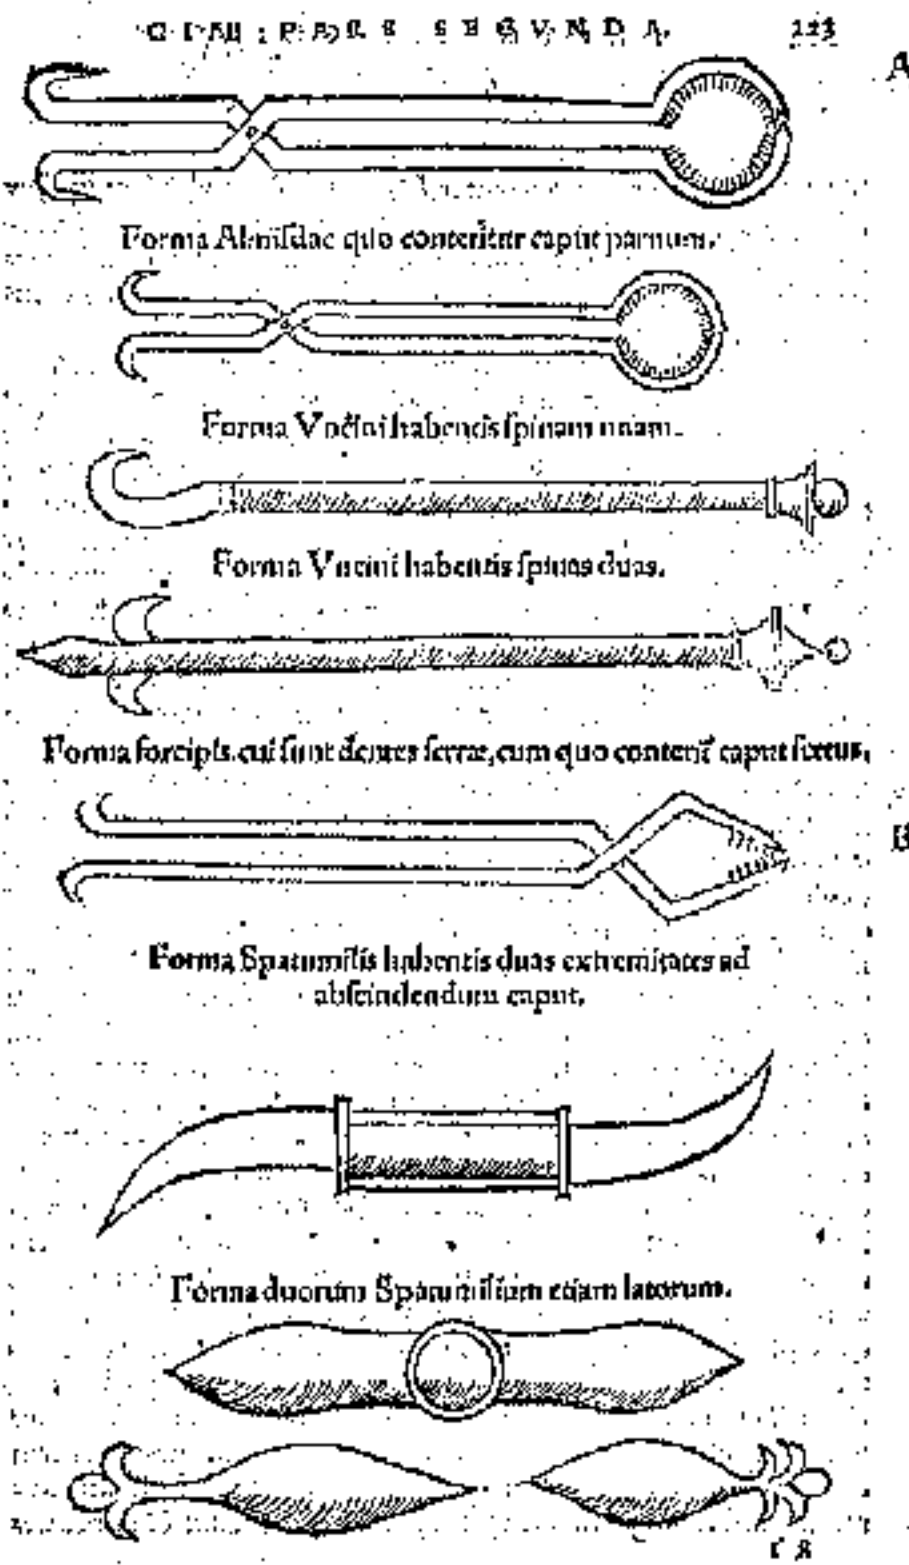 PARS SECVNDA. 223
A
Forma Almiſdac quo conterit̃ur caput paruum.
Forma Vncini habentis ſpinam unam.
Forma Vncini habentis ſpinas duas.
Forma forcipis cui ſunt dentes ſerræ, cum quo conterit̃ caput fœtus.
B
Forma Spatumilis habentis duas extremitates ad
abſcindendum caput.
Forma duorum Spatumilium etiam latorum.